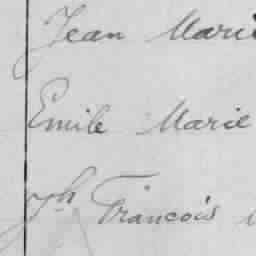 Jean Marie
Emile Marie
Jh François